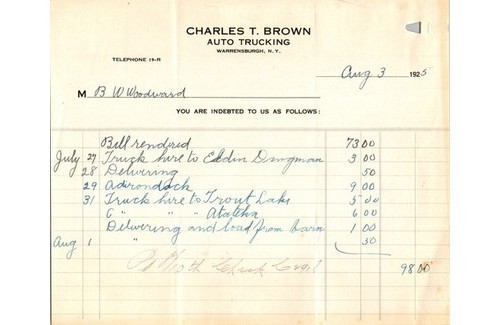 CHARLES T. BROWN
AUTO TRUCKING
WARRENSBURGH, N. Y.
TELEPHONE 19-R
Aug 3 1925
M B W Woodward
YOU ARE INDEBTED TO US AS FOLLOWS:
Bill rendered 73 00
July 27 Truck hire to Eddin Dingman 3 00
28 Delivering 50
29 Adirondack 9 00
31 Truck hire to Trout Lake 5 00
" " " Atateka 6 00
Delivering and load from barn 1 00
Aug 1 " 50
98 00